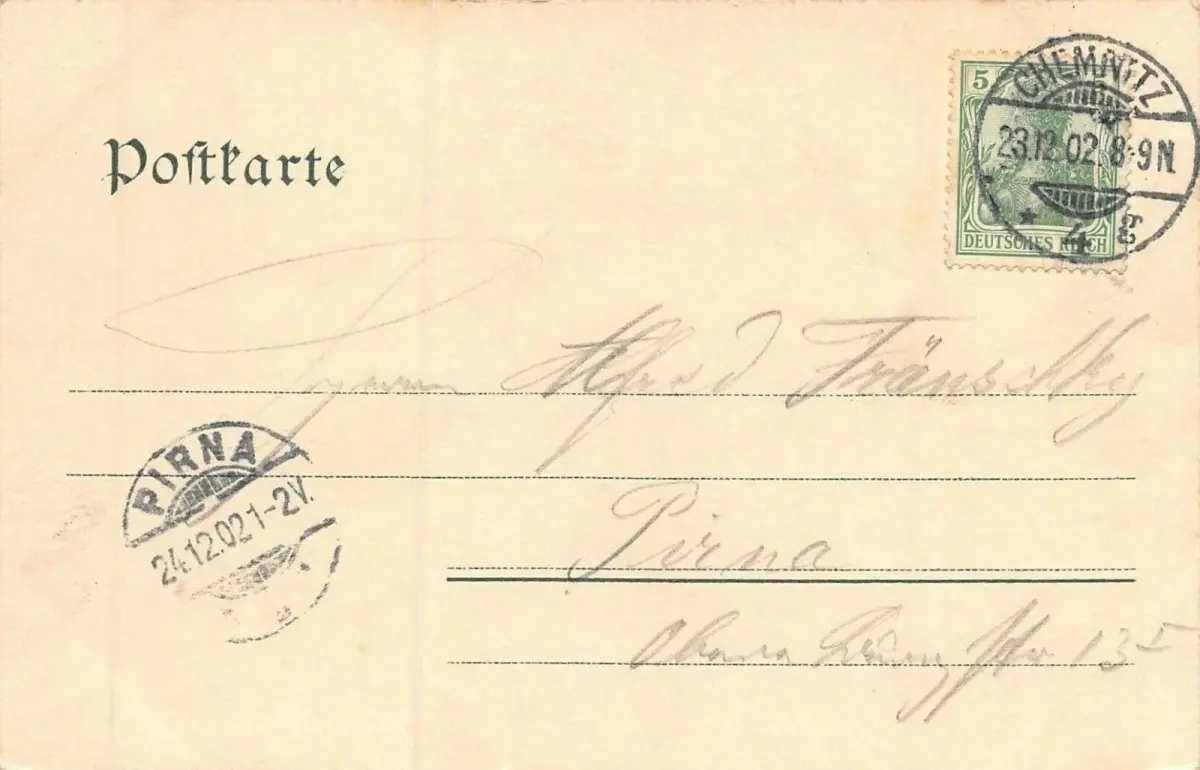 Postkarte
5
CHEMNITZ
23.12.02. 8-9N.
* 4 g
DEUTSCHES REICH
Herrn Alfred Fränschky
PIRNA
24.12.02 1-2V.
Pirna
Obere Burgstr 13 I